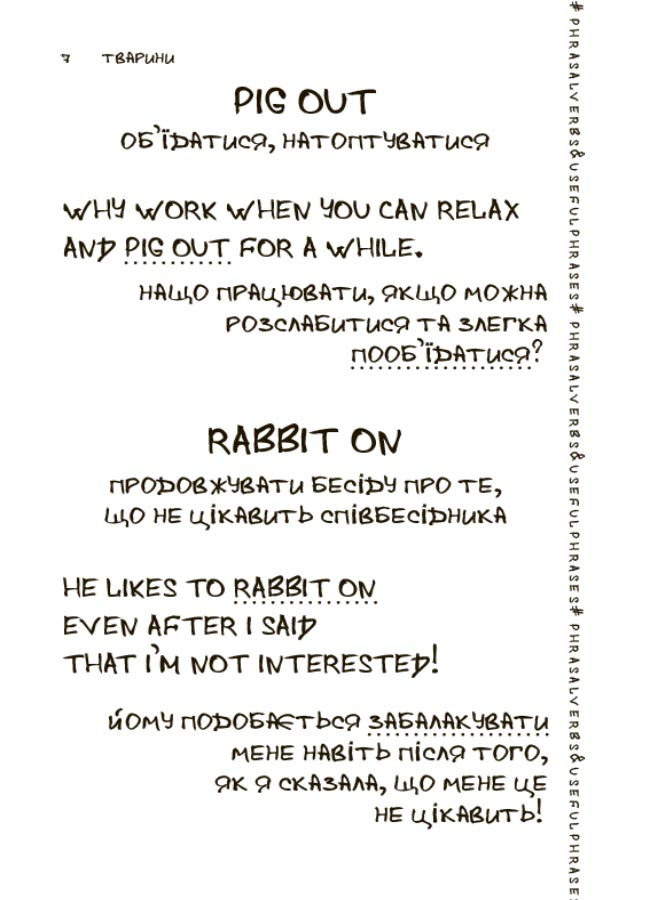 7 ТВАРИНИ
PIG OUT
ОБ'ЇДАТИСЯ, НАТОПТУВАТИСЯ
WHY WORK WHEN YOU CAN RELAX
AND PIG OUT FOR A WHILE.
НАЩО ПРАЦЮВАТИ, ЯКЩО МОЖНА
РОЗСЛАБИТИСЯ ТА ЗЛЕГКА
ПООБ'ЇДАТИСЯ?
RABBIT ON
ПРОДОВЖУВАТИ БЕСІДУ ПРО ТЕ,
ЩО НЕ ЦІКАВИТЬ СПІВБЕСІДНИКА
HE LIKES TO RABBIT ON
EVEN AFTER I SAID
THAT I'M NOT INTERESTED!
ЙОМУ ПОДОБАЄТЬСЯ ЗАБАЛАКУВАТИ
МЕНЕ НАВІТЬ ПІСЛЯ ТОГО,
ЯК Я СКАЗАЛА, ЩО МЕНЕ ЦЕ
НЕ ЦІКАВИТЬ!
# PHRASALVERBS&USEFULPHRASES# PHRASALVERBS&USEFULPHRASES# PHRASALVERBS&USEFULPHRASE